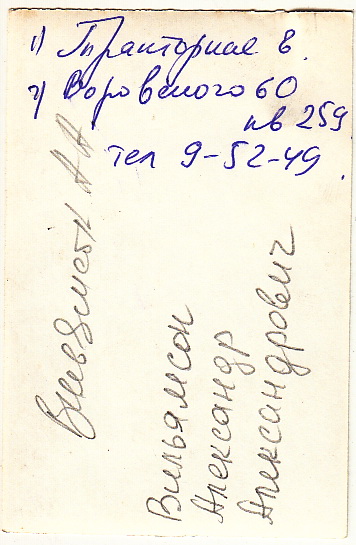 1) Тракторная 8.
2) Воровского 60
кв 259.
тел 9-52-49.
Вильямсон А А
Вильямсон
Александр
Александрович